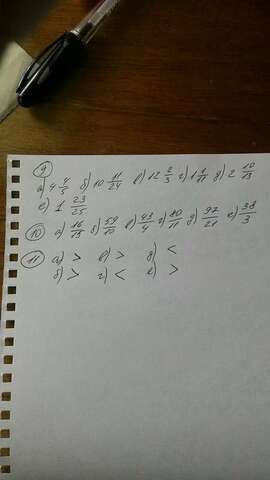 9
а) 4 4/5 б) 10 11/24 в) 12 2/3 г) 1 1/11 д) 2 10/13
е) 1 23/25
10 а) 16/13 б) 59/10 в) 43/4 г) 80/11 д) 97/21 е) 38/3
11 а) > в) > д) <
б) > г) < е) >